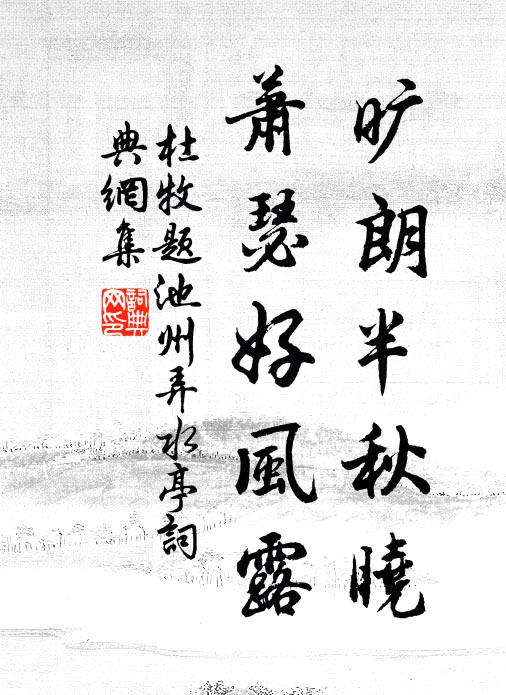 旷朗半秋曉
蕭瑟好風露
杜牧题池州弄水亭詞
典網集
詞典
网印